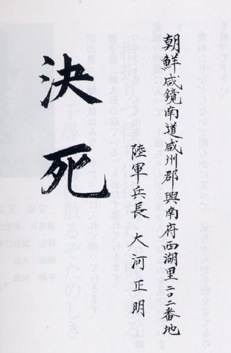 朝鮮咸鏡南道咸州郡興南府西湖里二〇二番地
陸軍兵長 大河正明
決死